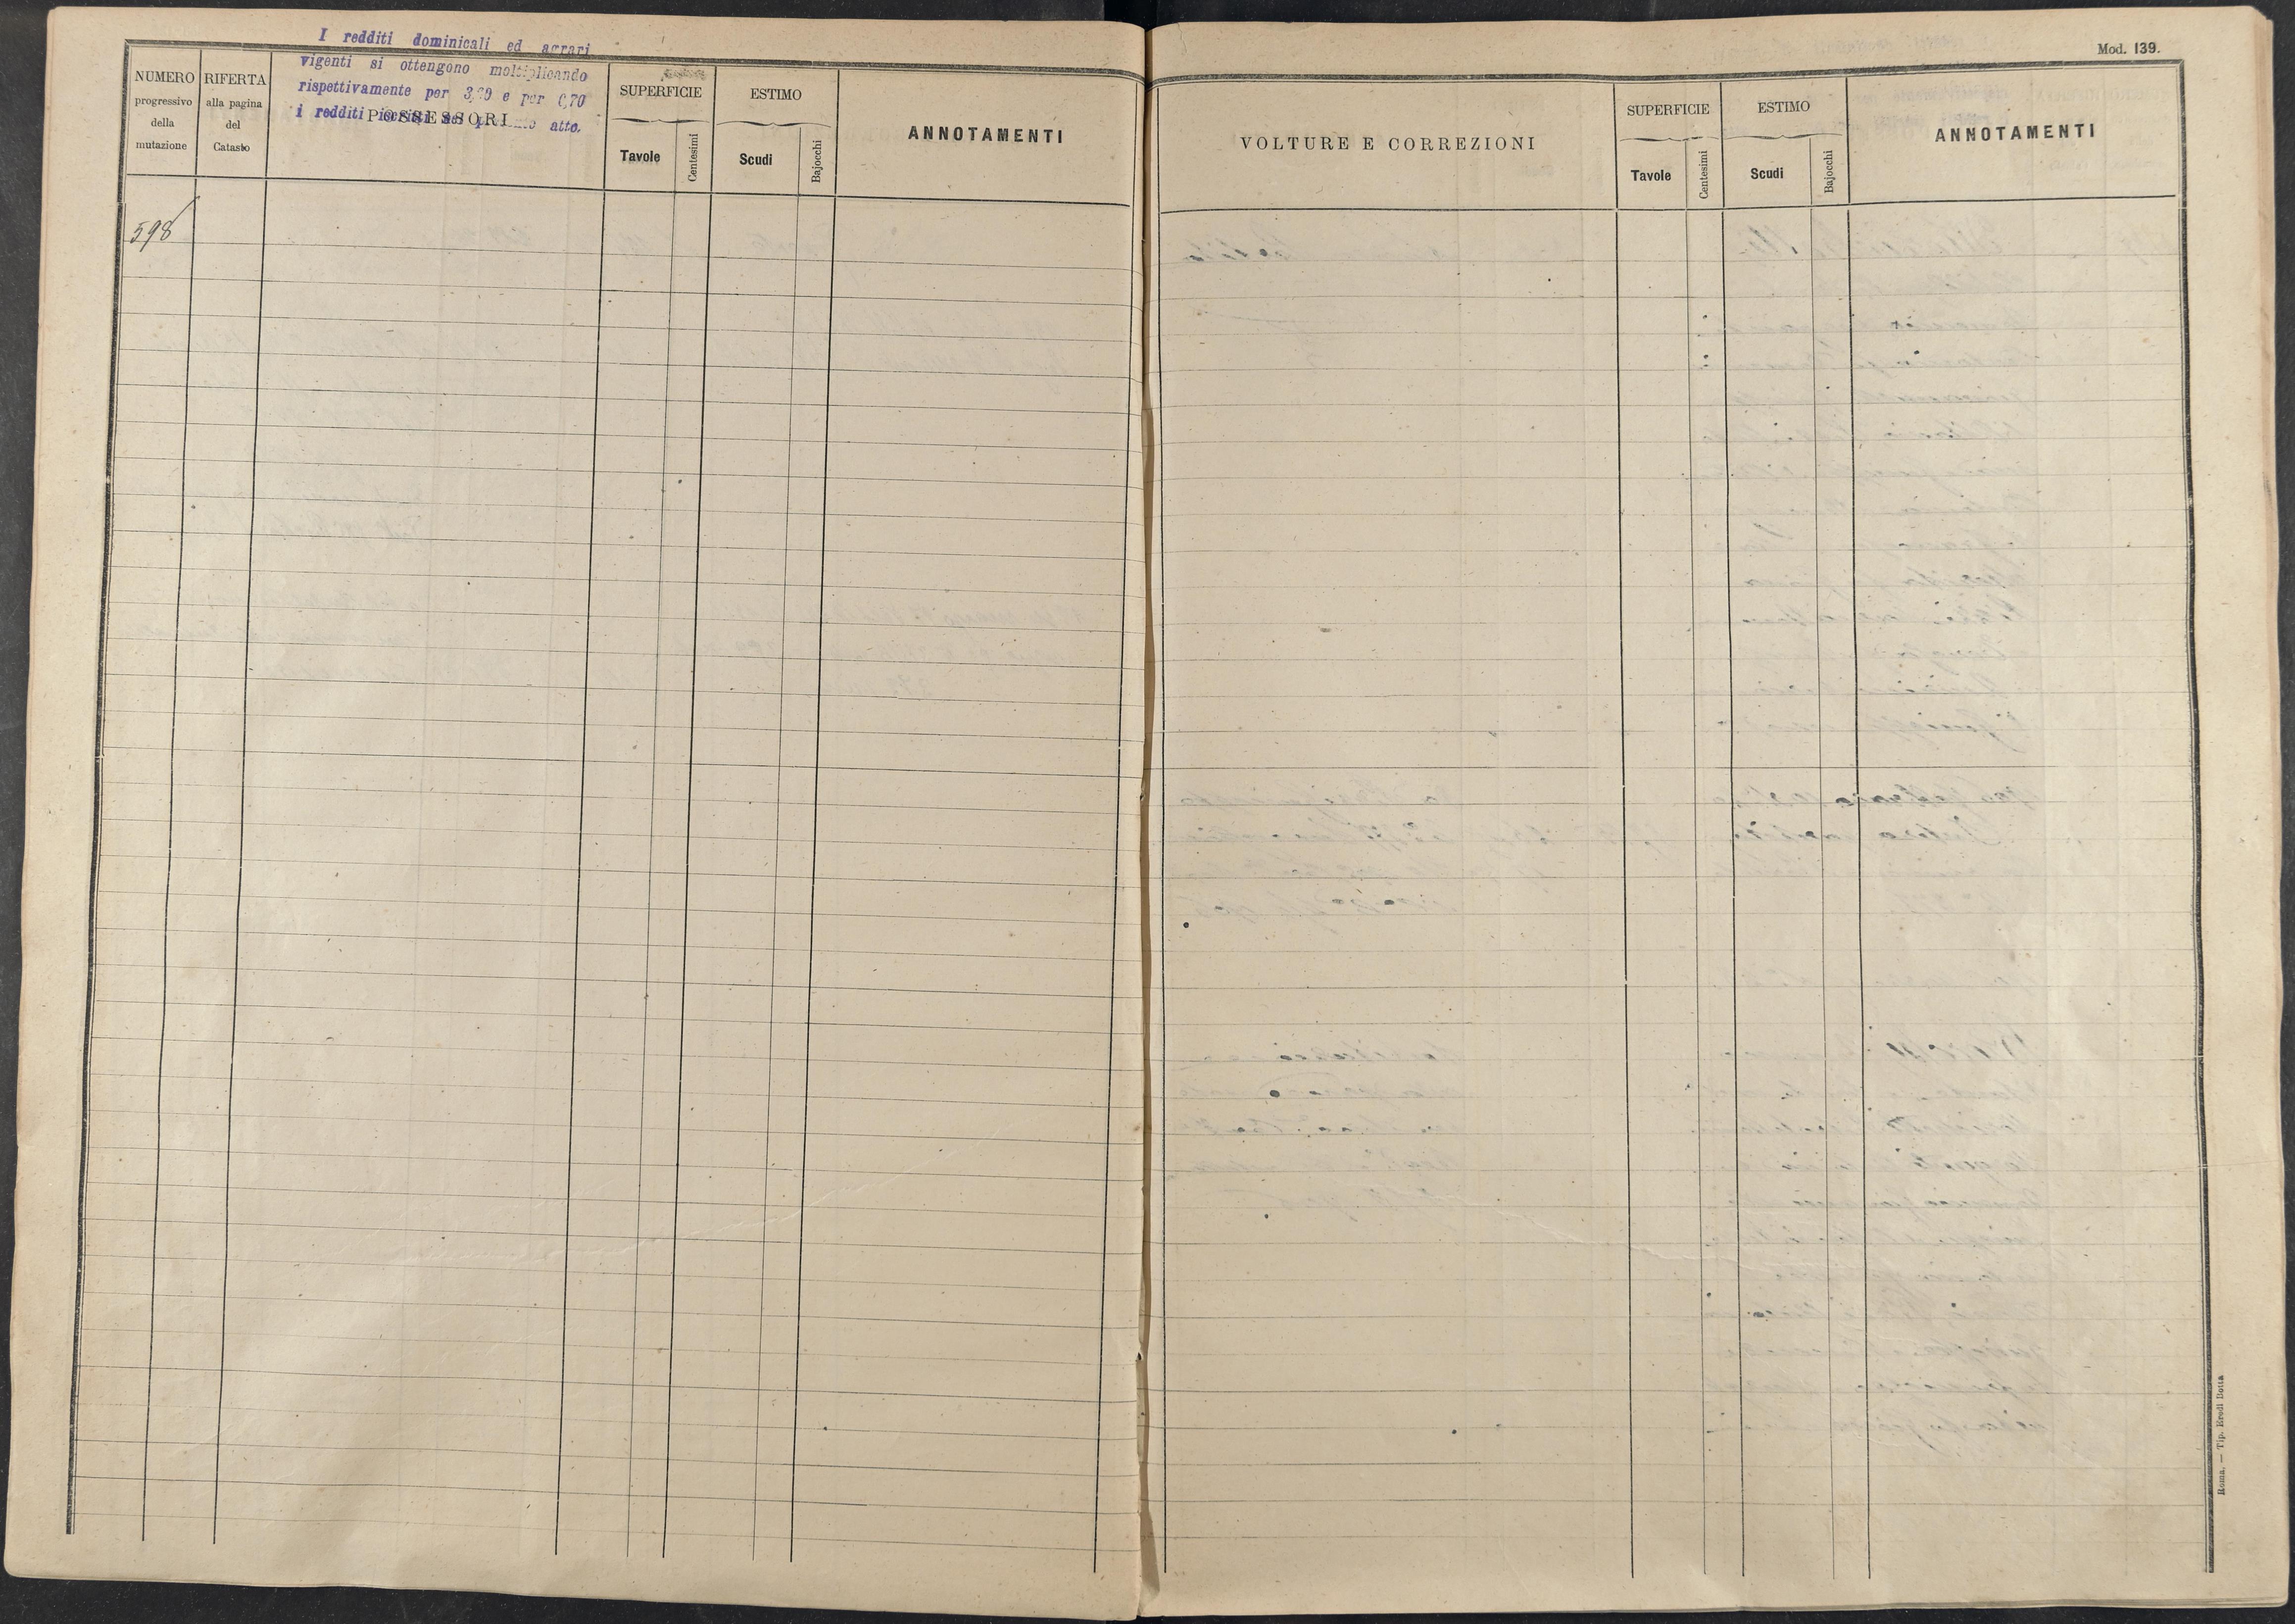 I redditi dominicali ed agrari
vigenti si ottengono moltiplicando
rispettivamente per 3,20 e per 0,70
i redditi atto.
NUMERO
progressivo
della
mutazione
RIFERTA
alla pagina
del
Catasto
POSSESSORI
SUPERFICIE
Tavole
Centesimi
ESTIMO
Scudi
Bajocchi
ANNOTAMENTI
598
Mod. 139.
VOLTURE E CORREZIONI
SUPERFICIE
Tavole
Centesimi
ESTIMO
Scudi
Bajocchi
ANNOTAMENTI
Roma, — Tip. Eredi Botta